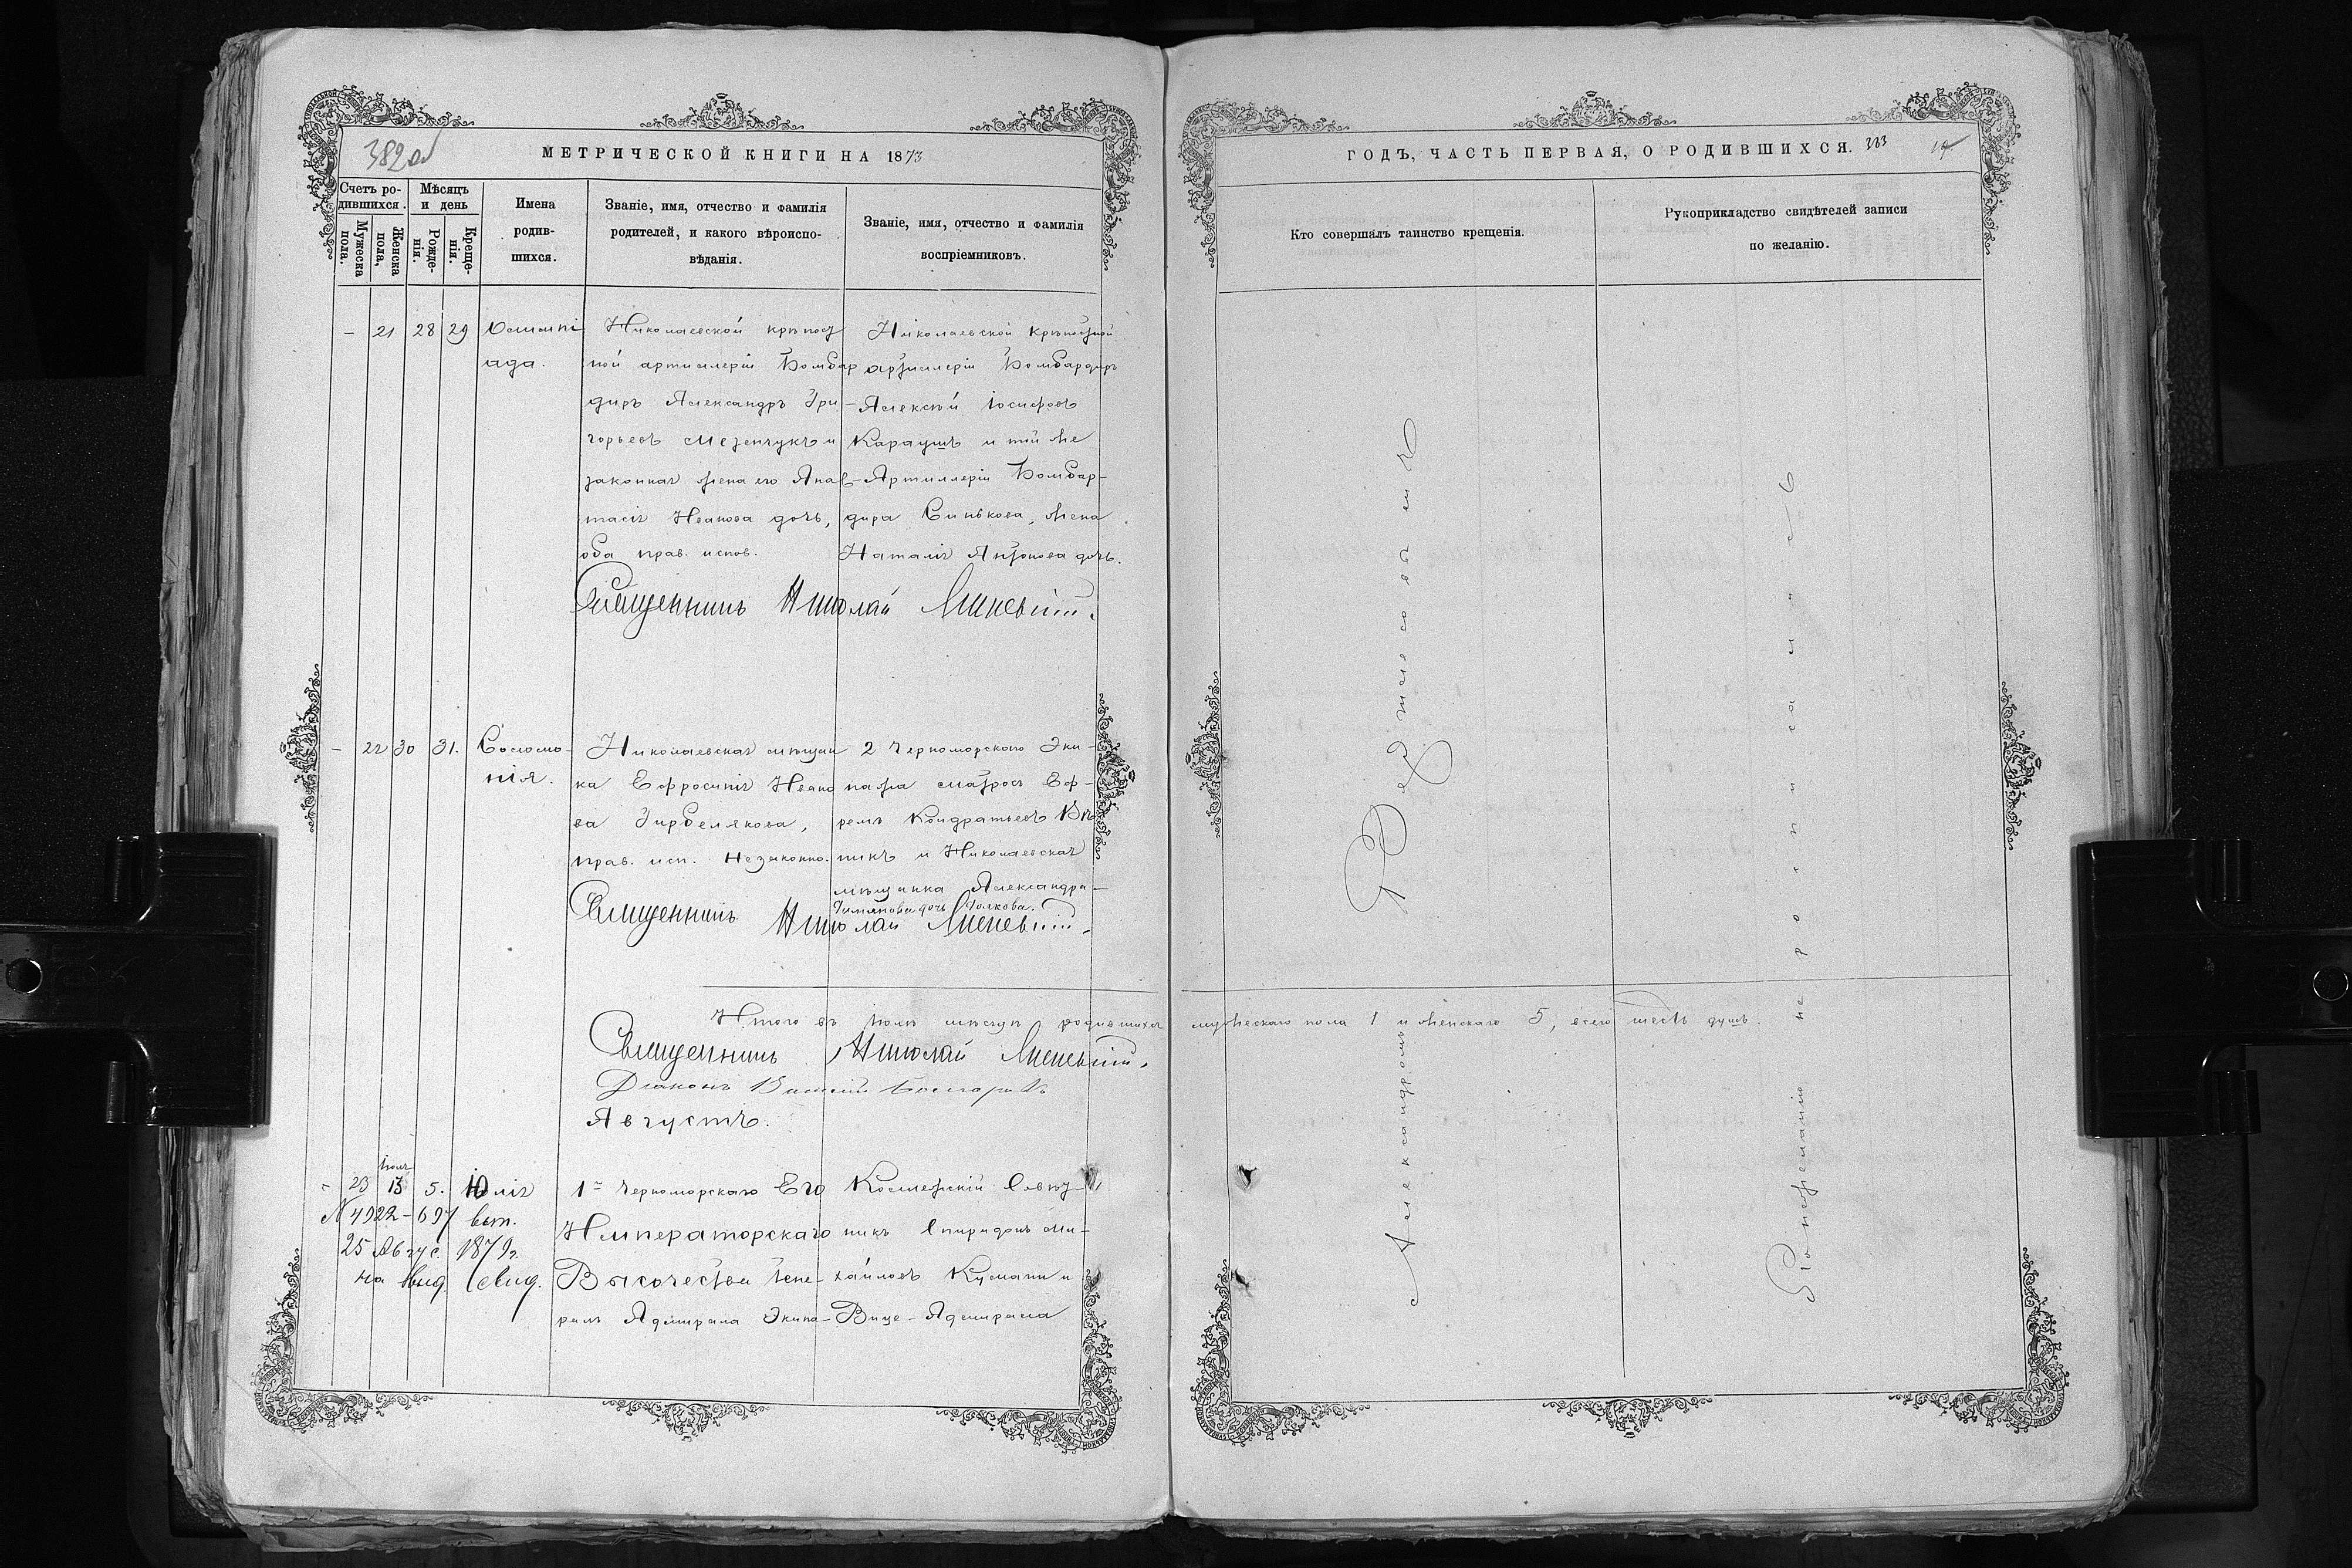 382 об
МЕТРИЧЕСКОЙ КНИГИ НА 1873
Счетъ ро-
дившихся.
Мужеска
пола.
Женска
пола,
Мѣсяцъ
и день
Рожде-
нія.
Креще-
нія.
Имена
родив-
шихся.
Званіе, имя, отчество и фамилія
родителей, и какого вѣроиспо-
вѣданія.
Званіе, имя, отчество и фамилія
воспріемниковъ.
- 21 28 29 Олимпі
ада.
Николаевской крѣпост
ной артиллеріи Бомбар
диръ Александръ Гри-
горьевъ Мезенчукъ и
законная жена его Анас-
тасія Иванова дочь,
оба прав. испов.
Николаевской крѣпостной
артиллеріи Бомбардиръ
Алексѣй Іосифовъ
Караушъ и той же
Артиллеріи Бомбар-
дира Синькова, жена
Наталія Антонова дочь.
Священникъ Николай
- 22 30 31. Соломо-
нія.
Николаевская мѣщан
ка Ефросинія Ивано
ва
прав. исп. Незаконно.
2 Черноморскаго Эки-
пажа матросъ Еф-
ремъ Кондратьевъ
никъ и Николаевская
мѣщанка Александра
дочь Волкова.
Священникъ Николай
Итого въ Іюлѣ мѣсяцѣ родившихся мужескаго пола 1 и женскаго 5, всего шесть душъ.
Священникъ Николай
Діаконъ
Августъ.
Іюля
- 23 15 5. Юлія
№ 4922-697 выт.
25 Авгус. 1879г.
на выд. свид.
1го Черноморскаго Его
Императорскаго
Высочества Гене-
ралъ Адмирала Экипа-
Спиридонъ Ми-
хайловъ Кумани и
Вице-Адмирала
ГОДЪ, ЧАСТЬ ПЕРВАЯ, О РОДИВШИХСЯ. 383
Кто совершалъ таинство крещенія.
Рукоприкладство свидѣтелей записи
по желанію.
Александромъ
По нежеланію не росписались